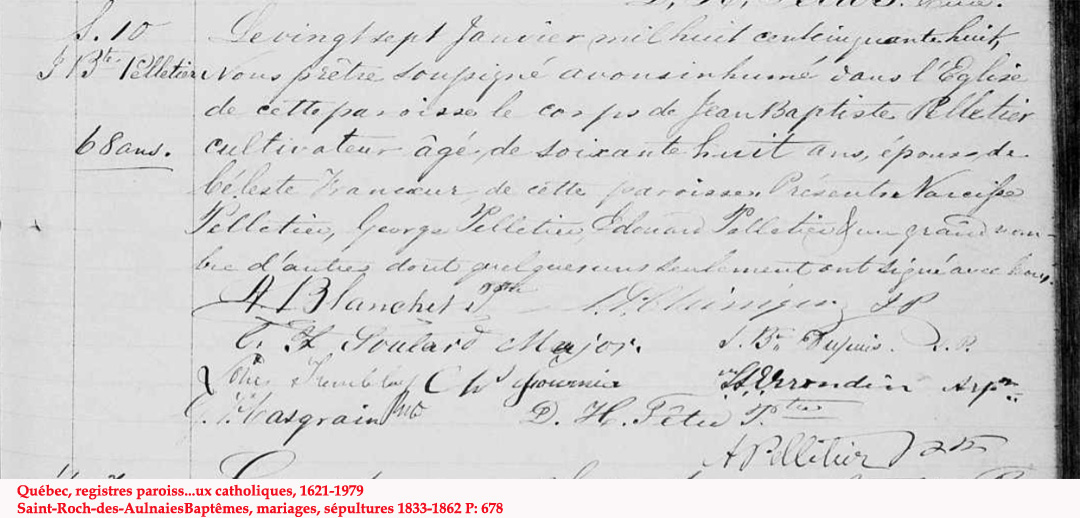 S. 10
J Bte Pelletier
68 ans.
Le vingt sept Janvier mil huit cent cinquante huit,
Nous prêtre soussigné avons inhumé dans l'Eglise
de cette paroisse le corps de Jean Baptiste Pelletier
cultivateur âgé de soixante huit ans, époux de
Céleste Francœur de cette paroisse. Présents Narcisse
Pelletier, George Pelletier, Edouard Pelletier & un grand nom-
bre d'autres dont quelques uns seulement ont signé avec nous.
A Blanchet Ptre
J P
Goulard Major.
J. Bte Dupuis
Tremblay Chs Fournier
Arpr
Casgrain D. H. Têtu Ptre
A Pelletier
Québec, registres paroiss...ux catholiques, 1621-1979
Saint-Roch-des-AulnaiesBaptêmes, mariages, sépultures 1833-1862 P: 678